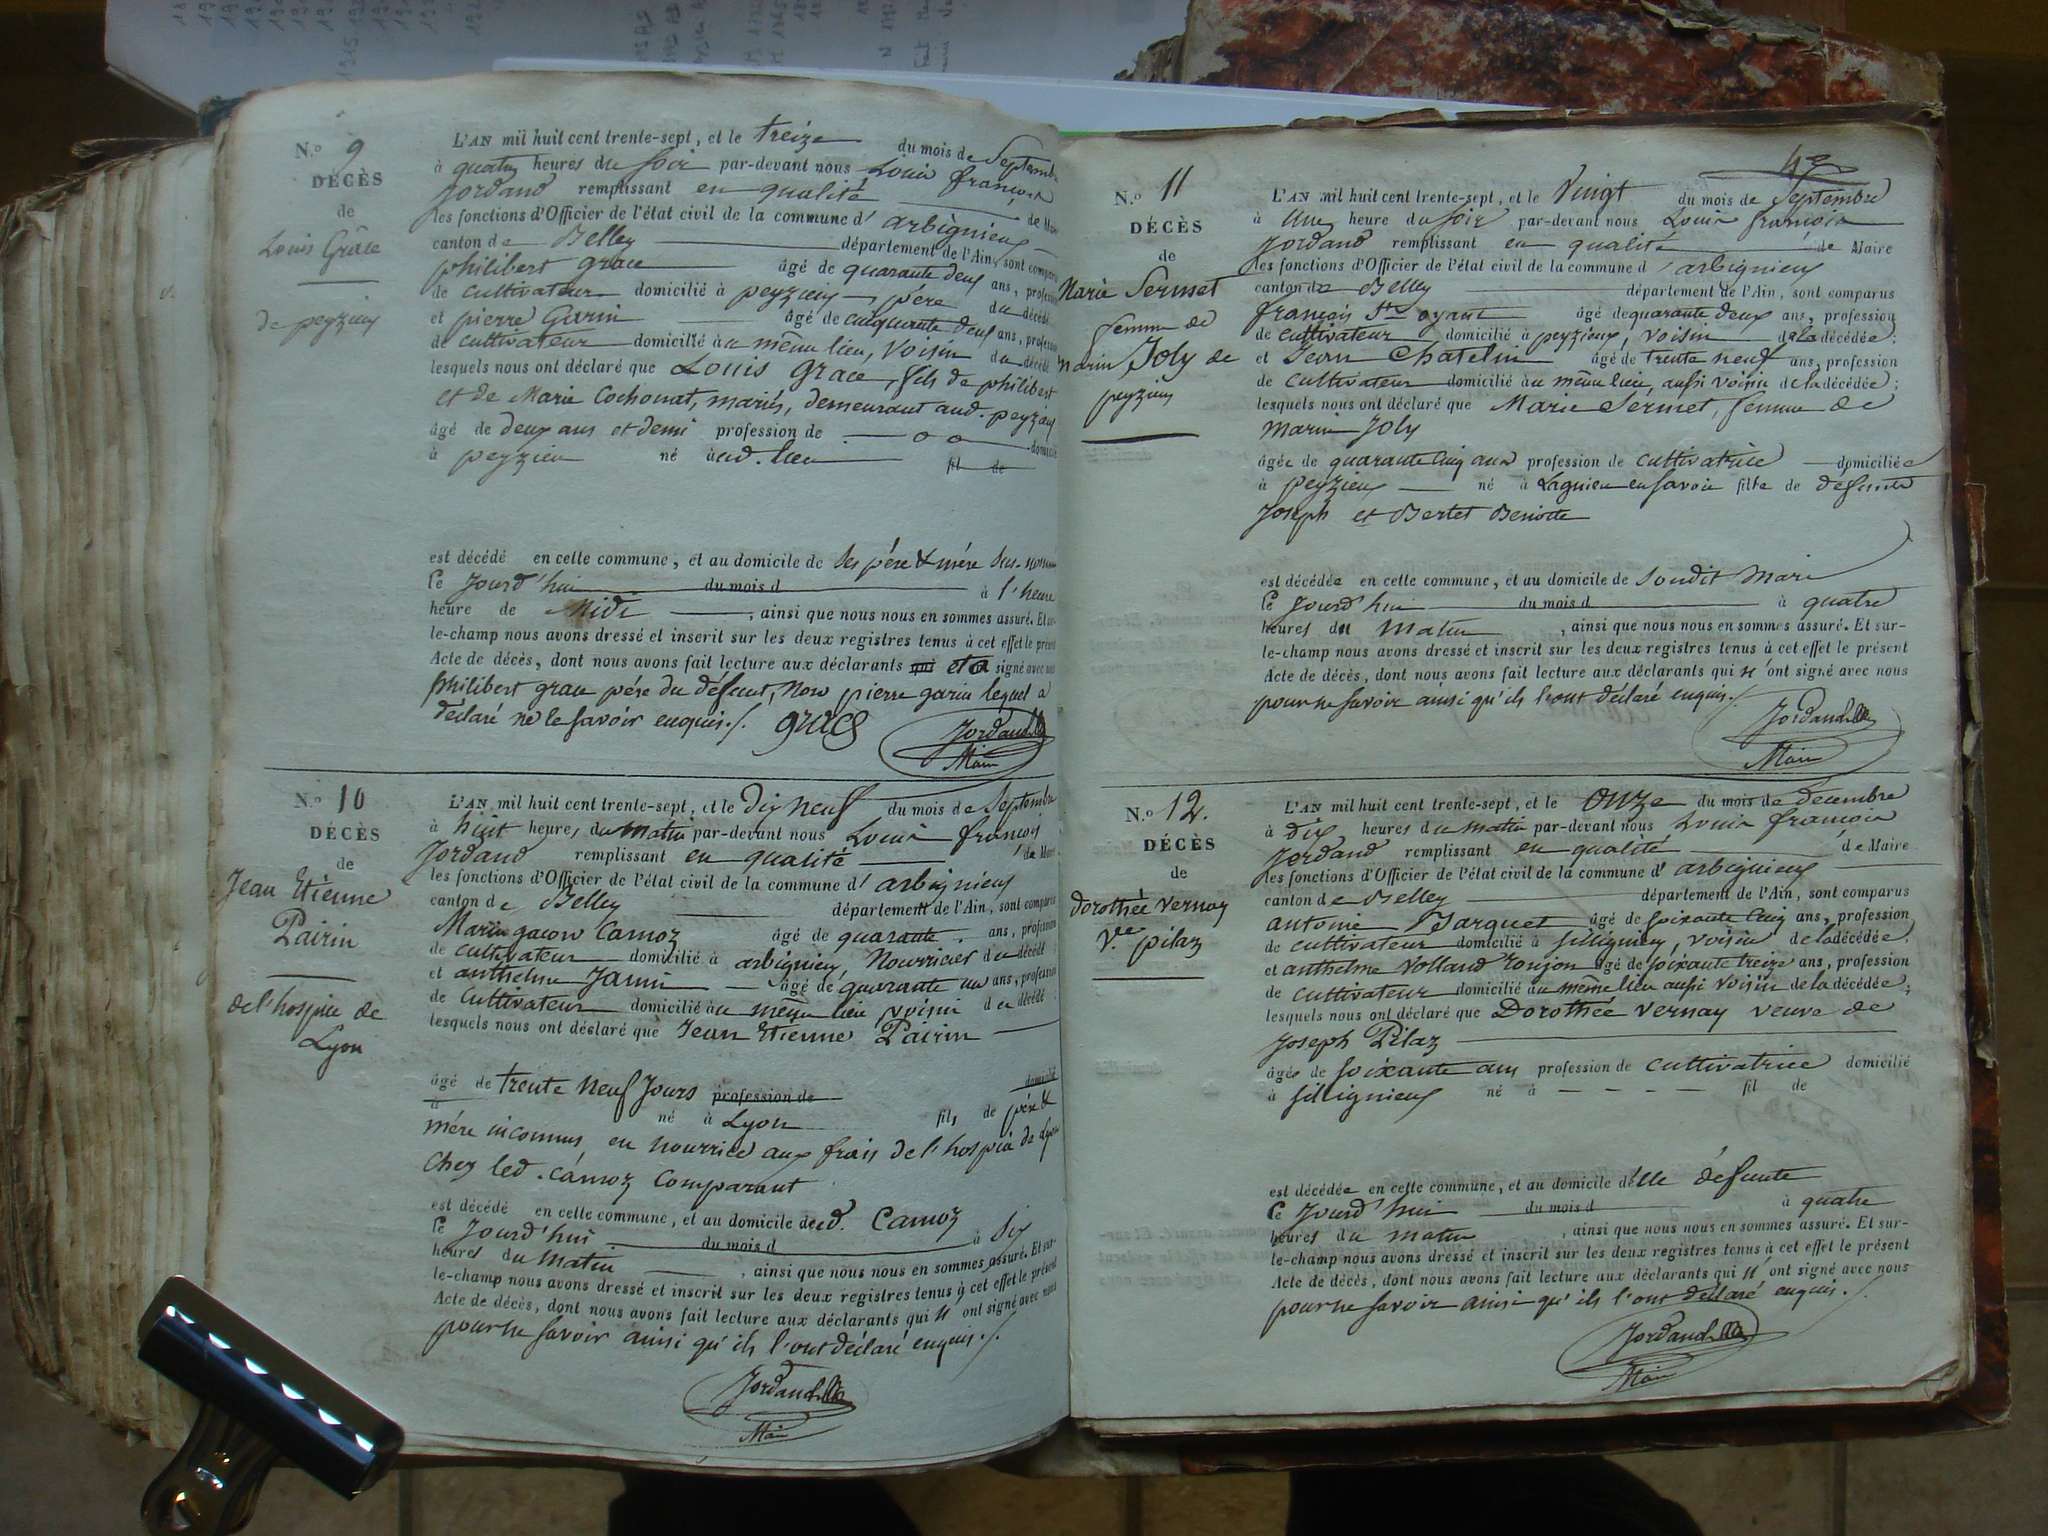 N.o 9
DÉCÈS
de
Louis Grâce
de peyzieu
L'AN mil huit cent trente-sept, et le treize du mois de Septembre
à quatre heures du soir par-devant nous Louis françois
Jordand remplissant en qualité de Maire
les fonctions d'Officier de l'état civil de la commune d' arbignieu
canton de Belley département de l'Ain, sont comparus
philibert grace âgé de quarante deux ans, profession
de cultivateur domicilié à peyzieu, père du décédé
et pierre Garin âgé de cinquante deux ans, profession
de cultivateur domicilié au même lieu, voisin du décédé
lesquels nous ont déclaré que Louis Grace, fils de philibert
et de Marie Cochonat, mariés, demeurant aud. peyzieu
âgé de deux ans et demi profession de domicilié
à peyzieu né aud. lieu fil de
est décédé en cette commune, et au domicile de ses père & mère sus-nommés
le jourd'hui du mois d à l'heure
heure de Midi, ainsi que nous nous en sommes assuré. Et sur-
le-champ nous avons dressé et inscrit sur les deux registres tenus à cet effet le présent
Acte de décès, dont nous avons fait lecture aux déclarants qui et a signé avec nous
philibert grace père du défunt, non pierre garin lequel a
déclaré ne le savoir enquis./. grace Jordand
Maire
N.o 10
DÉCÈS
de
Jean Etienne
Pairin
de l'hospice de
Lyon
L'AN mil huit cent trente-sept, et le dix neuf du mois de Septembre
à huit heures du matin par-devant nous Louis françois
Jordand remplissant en qualité de Maire
les fonctions d'Officier de l'état civil de la commune d' arbignieu
canton de Belley département de l'Ain, sont comparus
Marin gacon Camoz âgé de quarante ans, profession
de cultivateur domicilié à arbignieu, Nourricier du décédé
et anthelme Janin âgé de quarante un ans, profession
de cultivateur domicilié au même lieu voisin du décédé
lesquels nous ont déclaré que Jean Etienne Pairin
âgé de trente neuf jours profession de domicilié
à né à Lyon fils de père &
mère inconnus en nourrice aux frais de l'hospice de Lyon
chez led. Camoz comparant
est décédé en cette commune, et au domicile dud. Camoz
le jourd'hui du mois d à six
heures du matin, ainsi que nous nous en sommes assuré. Et sur-
le-champ nous avons dressé et inscrit sur les deux registres tenus à cet effet le présent
Acte de décès, dont nous avons fait lecture aux déclarants qui n'ont signé avec nous
pour ne savoir ainsi qu'ils l'ont déclaré enquis./.
Jordand
Maire
N.o 11
DÉCÈS
de
Marie Sermet
femme de
marin Joly de
peyzieu
L'AN mil huit cent trente-sept, et le Vingt du mois de Septembre
à Une heure du soir par-devant nous Louis françois
Jordand remplissant en qualité de Maire
les fonctions d'Officier de l'état civil de la commune d' arbignieu
canton de Belley département de l'Ain, sont comparus
françois St. oyant âgé de quarante deux ans, profession
de cultivateur domicilié à peyzieu, voisin de la décédée;
et Jean Chatelin âgé de trente neuf ans, profession
de cultivateur domicilié au même lieu, aussi voisin de la décédée;
lesquels nous ont déclaré que Marie Sermet, femme de
Marin Joly
âgée de quarante cinq ans profession de cultivatrice domiciliée
à peyzieu né à Lagnieu en Savoie fille de défunts
Joseph et Bertet Benoite
est décédée en cette commune, et au domicile de Soudit Mari
le jourd'hui du mois d à quatre
heures du matin, ainsi que nous nous en sommes assuré. Et sur-
le-champ nous avons dressé et inscrit sur les deux registres tenus à cet effet le présent
Acte de décès, dont nous avons fait lecture aux déclarants qui n'ont signé avec nous
pour ne savoir ainsi qu'ils l'ont déclaré enquis./.
Jordand
Maire
N.o 12.
DÉCÈS
de
dorothée vernay
Vve pilaz
L'AN mil huit cent trente-sept, et le onze du mois de décembre
à dix heures du matin par-devant nous Louis françois
Jordand remplissant en qualité de Maire
les fonctions d'Officier de l'état civil de la commune d' arbignieu
canton de Belley département de l'Ain, sont comparus
antoine Jarquet âgé de soixante cinq ans, profession
de cultivateur domicilié à Sillignieu, voisin de la décédée
et anthelme Volland Roujon âgé de soixante treize ans, profession
de cultivateur domicilié au même lieu aussi voisin de la décédée;
lesquels nous ont déclaré que Dorothée Vernay veuve de
Joseph Pilaz
âgée de soixante ans profession de cultivatrice domicilié
à Sillignieu né à fil de
est décédée en cette commune, et au domicile d'elle défunte
le jourd'hui du mois d à quatre
heures du matin, ainsi que nous nous en sommes assuré. Et sur-
le-champ nous avons dressé et inscrit sur les deux registres tenus à cet effet le présent
Acte de décès, dont nous avons fait lecture aux déclarants qui n'ont signé avec nous
pour ne savoir ainsi qu'ils l'ont déclaré enquis./.
Jordand
Maire